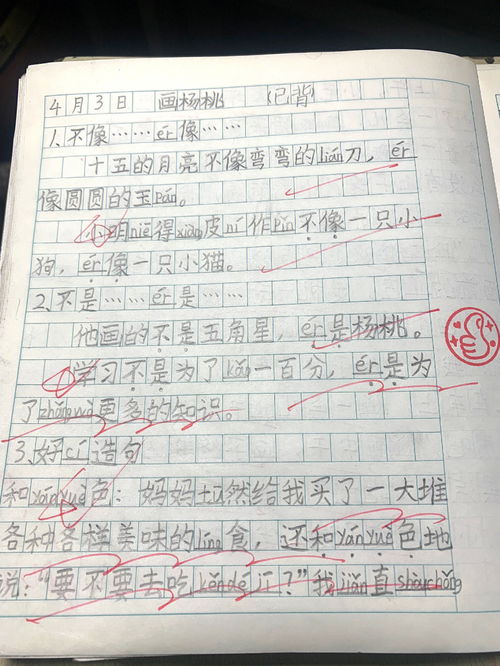 4月3日 画杨桃 记背
1、不像……ér像……
十五的月亮不像弯弯的lián刀，ér
像圆圆的玉pán。
小明niē得xiàng皮ní作pǐn不像一只小
狗，ér像一只小猫。
2、不是……ér是……
他画的不是五角星，ér是杨桃。
学习不是为了kǎo一百分，ér是为
了zhǎngwò更多的知识。
3、好cí造句
和yányuè色：妈妈tū然给我买了一大堆
各种各样美味的líng食，还和yányuè色地
说：“要不要去吃kěndéjī？”我jiǎn直shòuchǒng